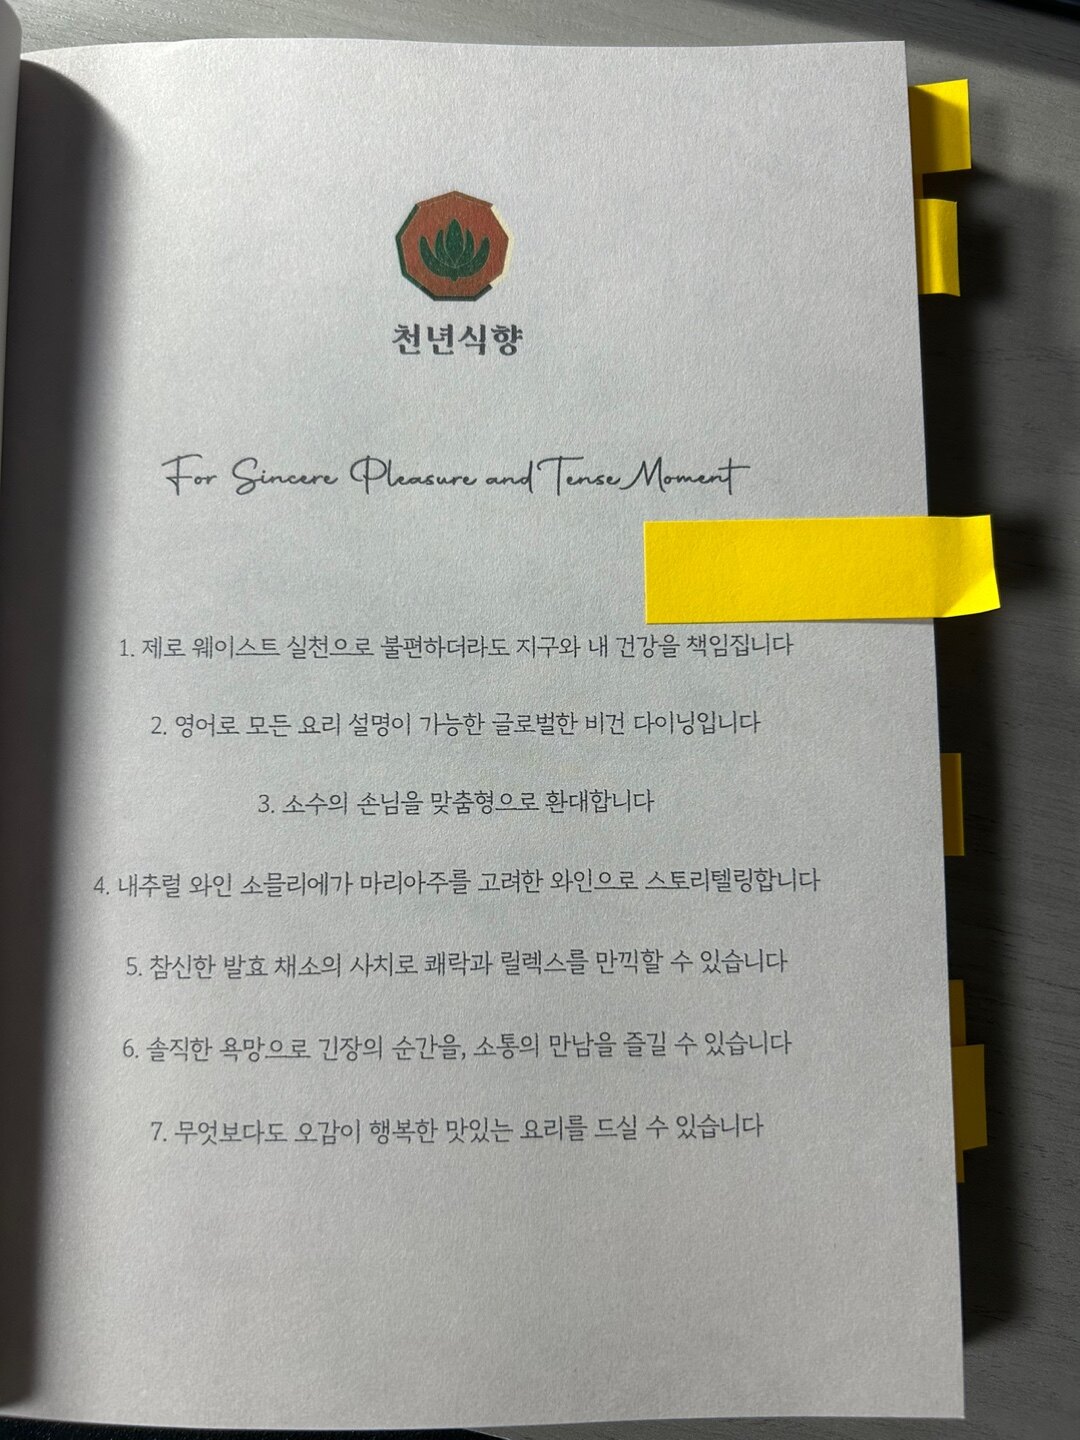 천년식향
For Sincere Pleasure and Tense Moment
1. 제로 웨이스트 실천으로 불편하더라도 지구와 내 건강을 책임집니다
2. 영어로 모든 요리 설명이 가능한 글로벌한 비건 다이닝입니다
3. 소수의 손님을 맞춤형으로 환대합니다
4. 내추럴 와인 소믈리에가 마리아주를 고려한 와인으로 스토리텔링합니다
5. 참신한 발효 채소의 사치로 쾌락과 릴렉스를 만끽할 수 있습니다
6. 솔직한 욕망으로 긴장의 순간을, 소통의 만남을 즐길 수 있습니다
7. 무엇보다도 오감이 행복한 맛있는 요리를 드실 수 있습니다